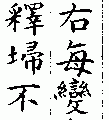 右每變
釋掃不